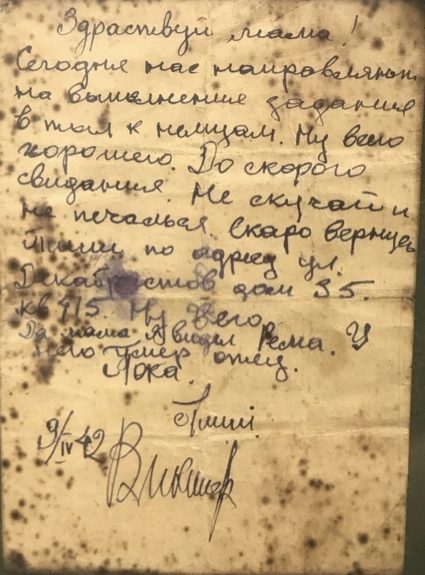 Здраствуй мама!
Сегодня нас направляют
на выполнение задания
в тыл к немцам. Ну всего
хорошего. До скорого
свидания. Не скучай и
не печалься. Скаро вернусь
Пиши по адресу ул.
Декабристов дом 35.
кв 415. Ну всего.
Да мама Я видел Рема. У
него умер отец.
Пока.
Пиши.
9/IV 42 Виктор